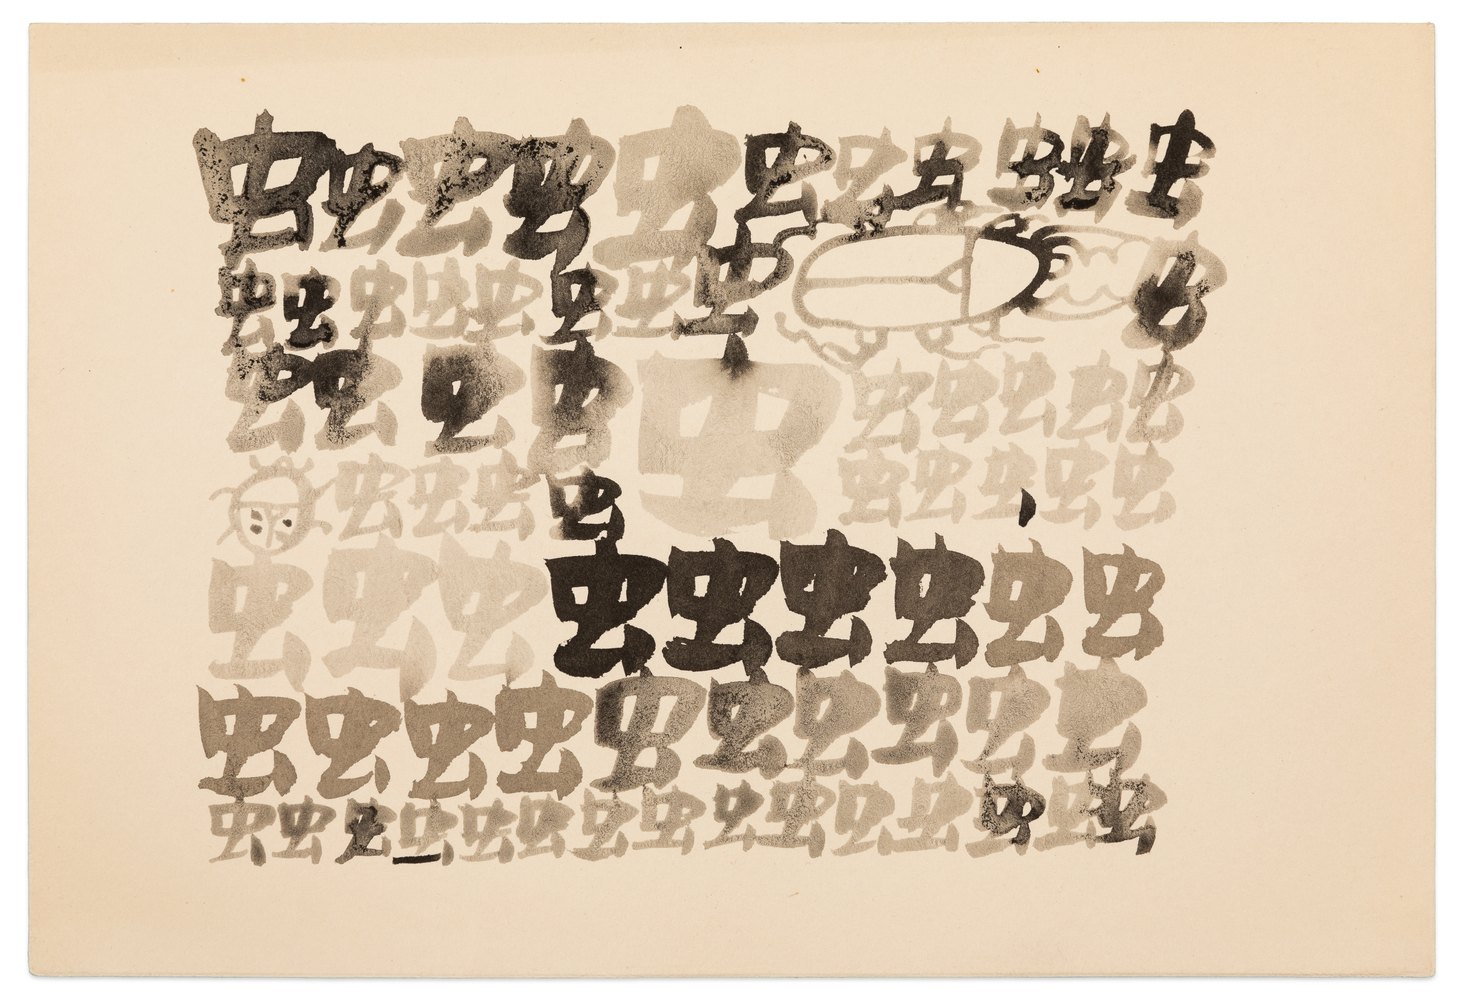 虫虫虫虫虫虫虫虫虫虫虫
虫虫虫虫虫虫虫虫虫
虫虫虫虫虫虫虫虫虫虫
虫虫虫虫虫虫虫虫虫
虫虫虫虫虫虫虫虫虫
虫虫虫虫虫虫虫虫虫虫
虫虫虫虫虫虫虫虫虫虫虫虫虫虫虫